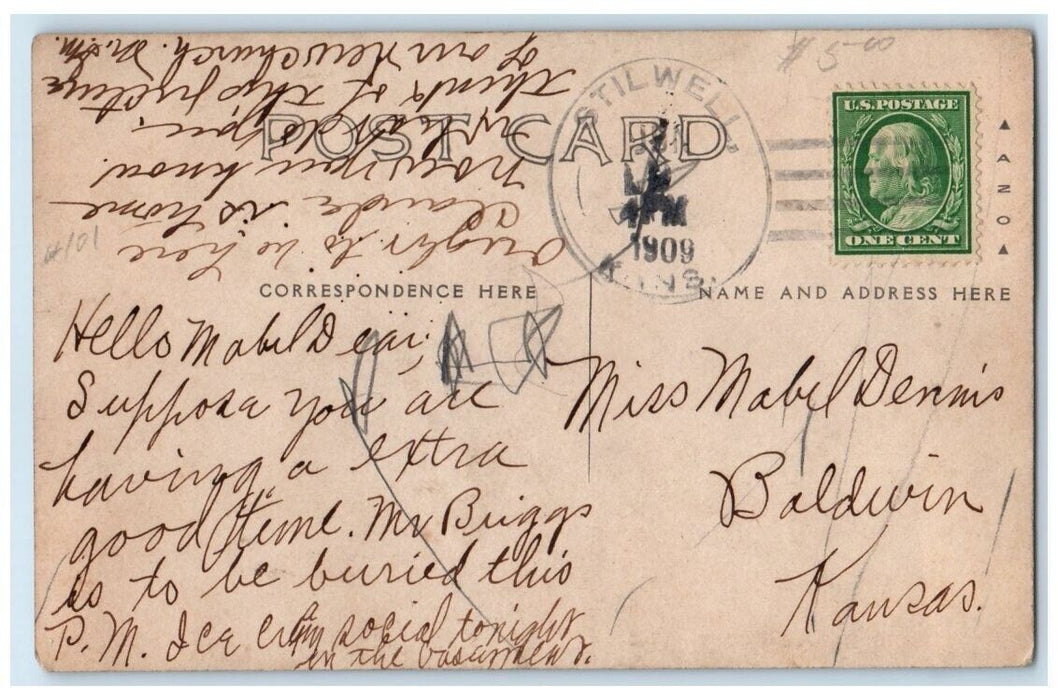 $5.00
STILWELL,
4 PM
1909
KANS.
U.S. POSTAGE
ONE CENT
POST CARD
AZO
#101
CORRESPONDENCE HERE
NAME AND ADDRESS HERE
Hello Mabel Dear.
Suppose you are
having a extra
good time. Mr Briggs
is to be buried this
P.M. Ice cream social tonight
in the basement.
ought to be here
Claude is home
now you know.
What do you
think of this picture
of our new church.
Miss Mabel Dennis
Baldwin
Kansas.